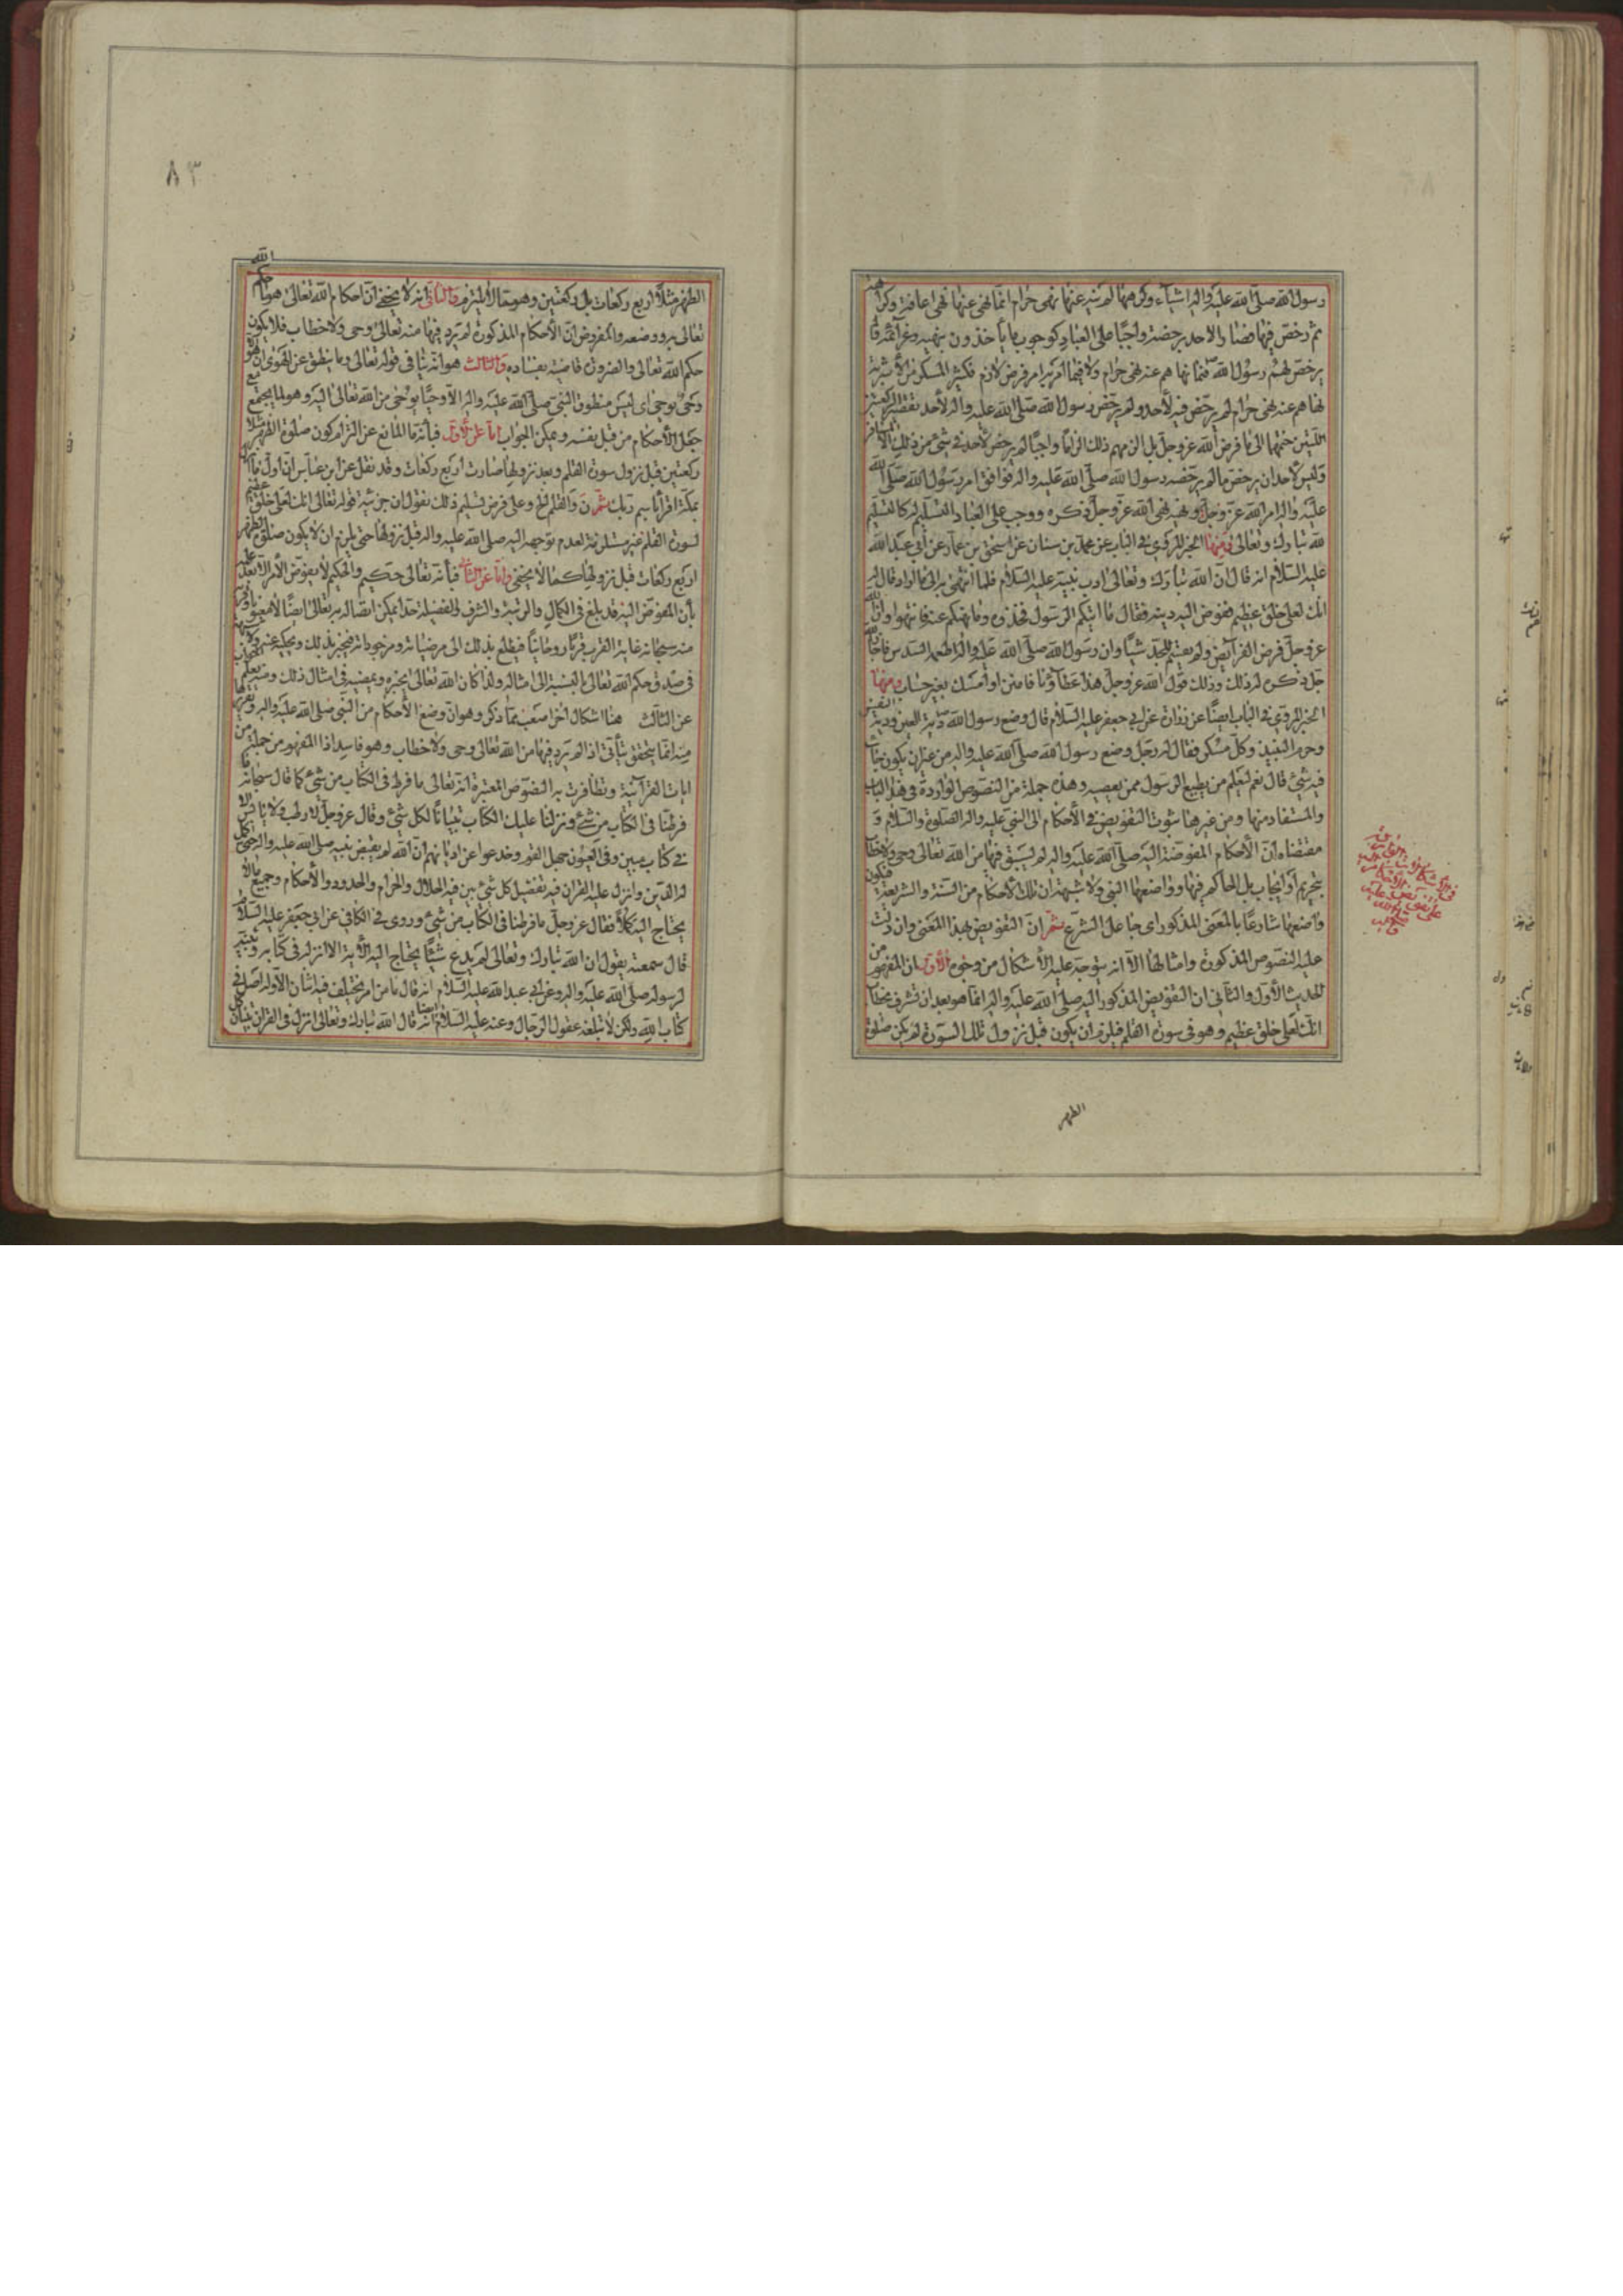 رسول الله صلّى الله عليه واله اشياء وكرهها لم ينه عنها نهى حرام انما نهى عنها نهى اعافة وكراهة
ثم رخص فيها فصار الاخذ برخصته واجبًا على العباد كوجوب ما يأخذون بنهيه وعزائمه ولم
يرخص لهم رسول الله ص فيما نهاهم عنه نهى حرام ولا فيما امر به امر فرض لازم فكثير المسكر من الأشربة
نهاهم عنه نهى حرام لم يرخص فيه لأحد ولم يرخص رسول الله صلّى الله عليه واله لأحد تقصير الركعتين
اللتين ضمهما الى ما فرض الله عز وجل بل الزمهم ذلك الزامًا واجبًا لم يرخص لأحد في شئ من ذلك الا للمسافر
وليس لأحد ان يرخص ما لم يرخصه رسول الله صلّى الله عليه واله فوافق امر رسول الله صلّى الله
عليه واله امر الله عزّ وجلّ ونهيه نهى الله عزّ وجلّ ذكره ووجب على العباد التسليم له كالتسليم
لله تبارك وتعالى ومنها الخبر المروى في الباب عن محمد بن سنان عن اسحق بن عمار عن أبي عبد الله
عليه السلام انه قال انّ الله تبارك وتعالى ادب نبيه عليه السلام فلما انتهى به الى ما اراد قال له
انك لعلى خلق عظيم ففوض اليه دينه فقال ما اتيكم الرسول فخذوه وما نهيكم عنه فانتهوا وان الله
عز وجل فرض الفرائض ولم يقسم للجد شيئًا وان رسول الله صلّى الله عليه واله اطعمه السدس فاجاز الله
جل ذكره له ذلك وذلك قول الله عز وجل هذا عطاؤنا فامنن او امسك بغير حساب ومنها
الخبر المروي في الباب ايضًا عن زرارة عن ابي جعفر عليه السلام قال وضع رسول الله ص دية العين ودية النفس
وحرم النبيذ وكلّ مسكر فقال له رجل وضع رسول الله صلى الله عليه واله من غير ان يكون جاء
فيه شئ قال نعم ليعلم من يطيع الرسول ممن يعصيه وهذه جملة من النصوص الواردة في هذا الباب
والمستفاد منها ومن غيرها ثبوت التفويض في الأحكام الى النبي عليه واله الصلوة والسلام و
مقتضاه انّ الأحكام المفوضة اليه صلّى الله عليه واله لم يسبق فيها من الله تعالى وحى ولا خطاب
بتحريم أو ايجاب بل الحاكم فيها وواضعها النبي ولا شبهة ان تلك الأحكام من السنة والشريعة فيكون
واضعها شارعًا بالمعنى المذكور اى جاعل الشرع ثمّ انّ التفويض بهذا المعنى وان دلّت
عليه النصوص المذكورة وامثالها الّا انه يتوجه عليه الأشكال من وجوه الأول ان المفهوم من
الحديث الأول والثاني ان التفويض المذكور اليه صلّى الله عليه واله انما هو بعد ان تشرف بخطاب
انك لعلى خلق عظيم وهو فى سورة القلم فيلزم ان يكون قبل نزول تلك السورة لم يكن صلوة
الظهر
٨٣
الظهر مثلًا اربع ركعات بل ركعتين وهو مما لا يلتزم والثانى انه لا يخفى انّ احكام الله تعالى هو ما حكم الله
تعالى به ووضعه والمفروض انّ الأحكام المذكورة لم يرد فيها منه تعالى وحى ولا خطاب فلا يكون
حكم الله تعالى والضرورة قاضية بفساده والثالث هو انّه ينافى قوله تعالى وما ينطق عن الهوى ان هو الا
وحى يوحى اى ليس منطوق النبي صلى الله عليه واله الا وحيًا يوحى من الله تعالى اليه وهو لما يجتمع مع
جعل الأحكام من قبل نفسه ويمكن الجواب اما عن الأول فبأنه ما المانع عن التزام كون صلوة الظهر مثلا
ركعتين قبل نزول سورة القلم وبعد نزولها صارت اربع ركعات وقد نقل عن ابن عباس ان اول ما انزل
بمكة اقرأ باسم ربك ثمّ ن والقلم الخ وعلى فرض تسليم ذلك نقول ان جزئية قوله تعالى انك لعلى خلق عظيم
لسورة القلم غير مستلزمة لعدم توجهه اليه صلى الله عليه واله قبل نزولها حتى يلزم ان لا يكون صلوة الظهر
اربع ركعات قبل نزولها كما لا يخفى وامّا عن الثانى فبأنه تعالى حكيم والحكيم لا يفوض الأمر الا بعد علمه
بأن المفوض اليه قد بلغ في الكمال والرتبة والشرف والفضيلة حدا يمكن
منه سبحانه غاية القرب قربًا روحانيًا فيطلع بذلك الى مرضياته ومزجوراته فيخبر بذلك ويحكيه عنه
فى صدق حكم الله تعالى بالنسبة الى امثاله ولذا كان الله تعالى يجيزه ويمضيه فى امثال ذلك ومنه يعلم الجواب
عن الثالث هنا اشكال اخر اصعب مما ذكر وهو انّ وضع الأحكام من النبي صلى الله عليه واله
انما يتحقق يتأتى اذا لم يرد فيها من الله تعالى وحى ولا خطاب وهو فاسد اذ المفهوم من جملة من
ايات القرآنية وتظافرت به النصوص المعتبرة انه تعالى ما فرط فى الكتاب من شئ كما قال سبحانه ما
فرطنا فى الكتاب من شئ ونزلنا عليك الكتاب تبيانًا لكل شئ وقال عز وجل لا رطب ولا يابس الا
في كتاب مبين وفى العيون جهل القوم وخدعوا عن اديانهم ان الله لم يقبض نبيه صلى الله عليه واله حتى اكمل
له الدين وانزل عليه القران فيه تفصيل كل شئ بين فيه الحلال والحرام والحدود والأحكام وجميع ما
يحتاج اليه كملًا فقال عز وجلّ ما فرطنا فى الكتاب من شئ وروى في الكافي عن ابي جعفر عليه السلام
قال سمعته يقول ان الله تبارك وتعالى لم يدع شيئًا يحتاج اليه الأمة الا انزله فى كتابه وبيّنه
لرسوله صلّى الله عليه واله وعن ابي عبد الله عليه السلام انه قال ما من امر يختلف فيه اثنان الا وله اصل فى
كتاب الله ولكن لا تبلغه عقول الرجال وعنه عليه السلام ايضا انه قال الله تبارك وتعالى انزل فى القرآن تبيان كل